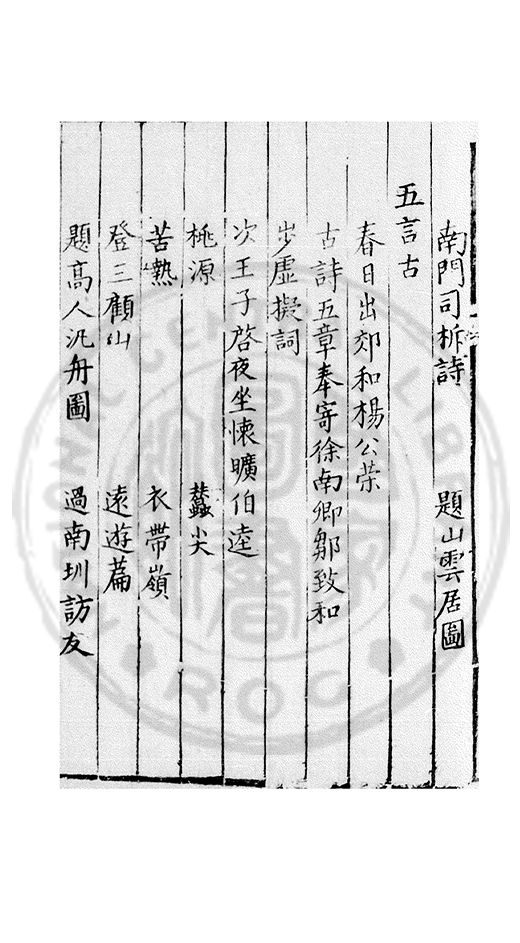 南門司柝詩　題山雲居圖
五言古
春日出郊和楊公荣
古詩五章奉寄徐南卿鄒致和
步虛擬詞
次王子啓夜坐懷曠伯逵
桃源　蠶尖
苦熱　衣帶嶺
登三顧山　遠遊篇
題高人汎舟圖　過南圳訪友